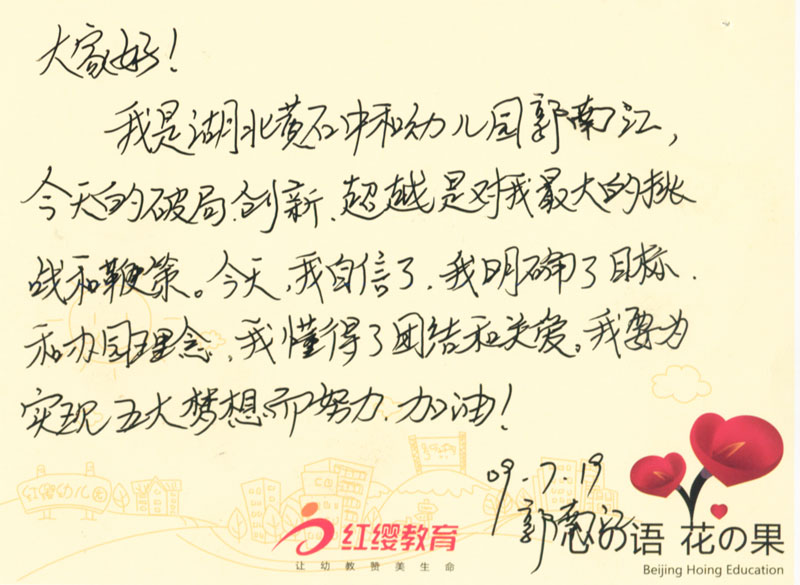 大家好！
我是湖北黄石冲和幼儿园郭南江，
今天的破局.创新.超越是对我最大的挑
战和鞭策。今天，我自信了，我明确了目标.
和办园理念，我懂得了团结和关爱。我要为
实现五大梦想而努力.加油！
09-7.19
郭南江
红缨幼儿园
红缨教育
让幼教赞美生命
语 花の果
Beijing Hoing Education